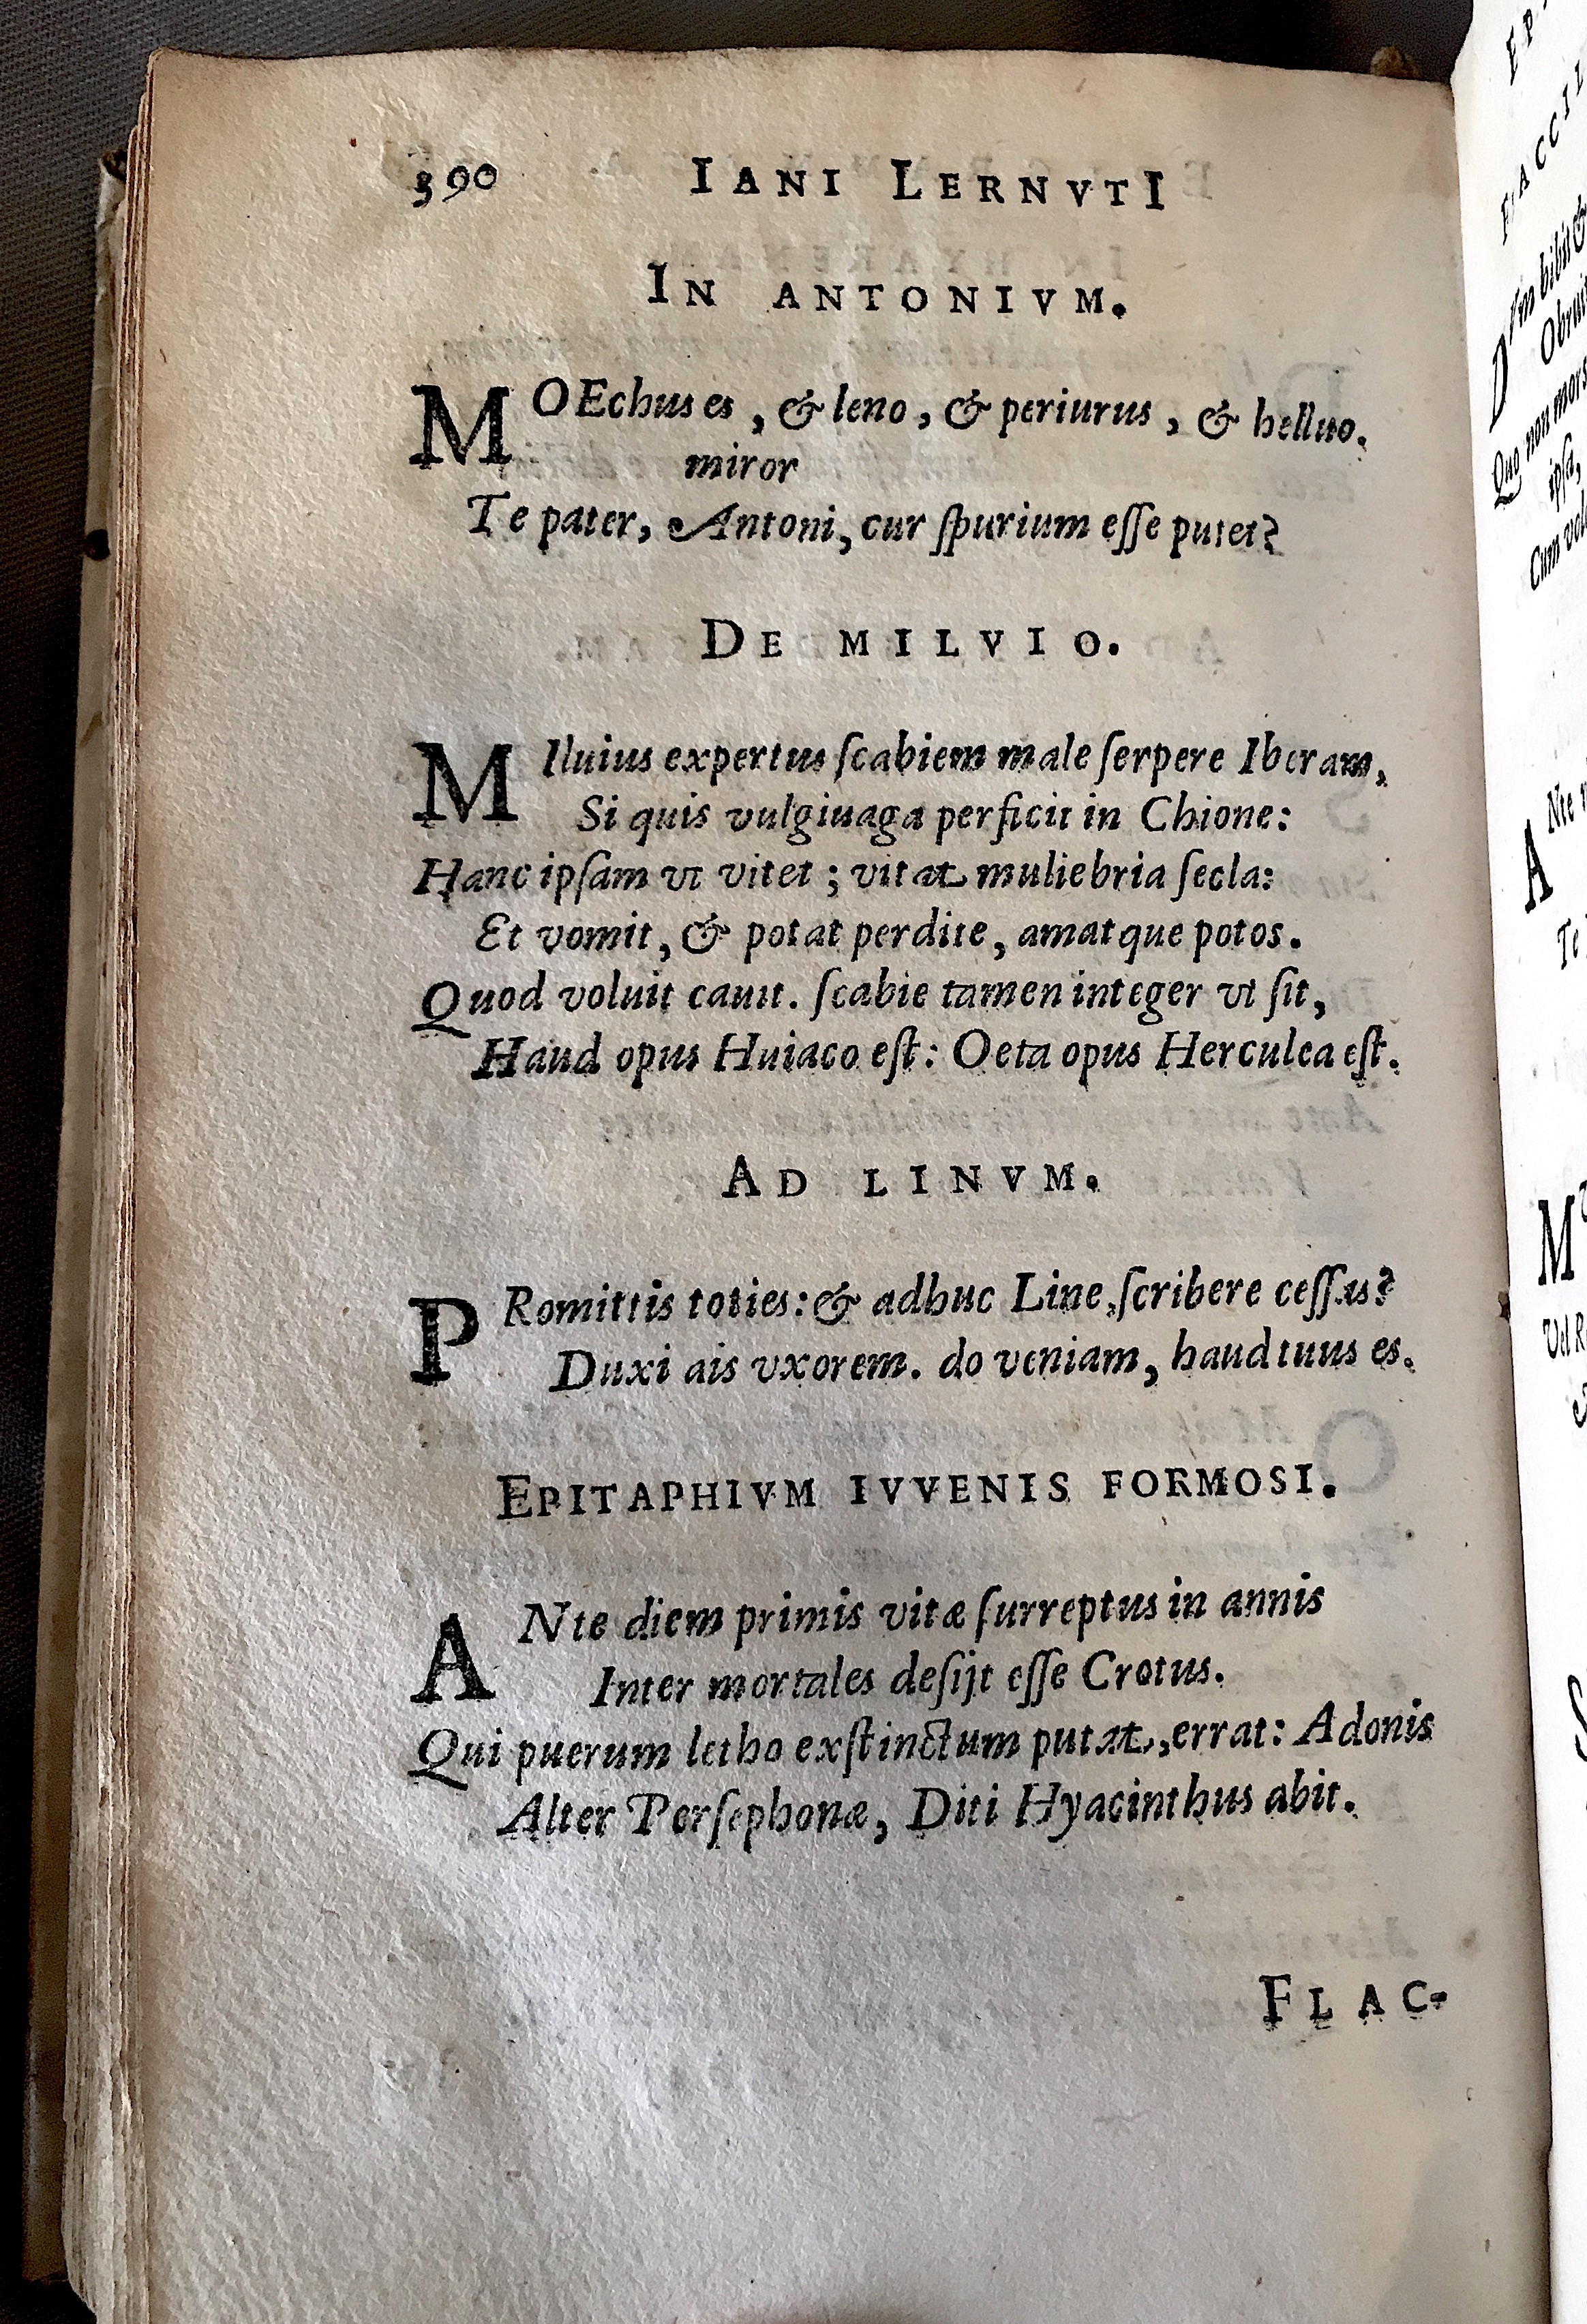 390 IANI LERNVTI
IN ANTONIVM.
MOEchus es, & leno, & periurus, & helluo.
miror
Te pater, Antoni, cur ſpurium eſſe putet?
DE MILVIO.
MIluius expertus ſcabiem male ſerpere Iberam,
Si quis vulgiuaga perſicit in Chione:
Hanc ipſam vt vitet; vitat muliebria ſecla:
Et vomit, & potat perdite, amatque potos.
Quod voluit cauit. ſcabie tamen integer vt ſit,
Haud opus Huiaco eſt: Oeta opus Herculea eſt.
AD LINVM.
PRomittis toties: & adhuc Line, ſcribere ceſſas?
Duxi ais vxorem. do veniam, haud tuus es.
EPITAPHIVM IVVENIS FORMOSI.
ANte diem primis vitæ ſurreptus in annis
Inter mortales deſijt eſſe Crotus.
Qui puerum letho exſtinctum putat, errat: Adonis
Alter Perſephonæ, Diti Hyacinthus abit.
FLAC-